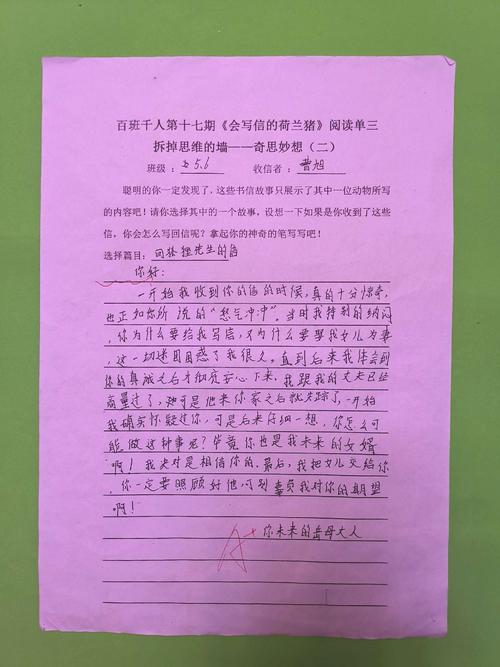 百班千人第十七期《会写信的荷兰猪》阅读单三
拆掉思维的墙——奇思妙想（二）
班级：25.6 收信者：曹旭
聪明的你一定发现了，这些书信故事只展示了其中一位动物所写
的内容吧！请你选择其中的一个故事，设想一下如果是你收到了这些
信，你会怎么写回信呢？拿起你的神奇的笔写写吧！
选择篇目：回林狸先生的信
你好：
一开始我收到你的信的时候，真的十分惊奇，
也正如你所说的“怒气冲冲”。当时我特别的纳闷
，你为什么要给我写信，又为什么要娶我女儿为妻
，这一切迷困惑了我很久。直到后来我体会到
你的真诚之后才彻底安心下来，我跟我的丈夫已经
商量过了，可是他来你家之后就失踪了，一开始
我确实怀疑过你，可是后来仔细一想，你怎么可
能做这种事呢？毕竟你也是我未来的女婿
啊！我绝对是相信你的，最后，我把女儿交给你
，你一定要照顾好他，别辜负我对你的期望
啊！
你未来的岳母大人
A+